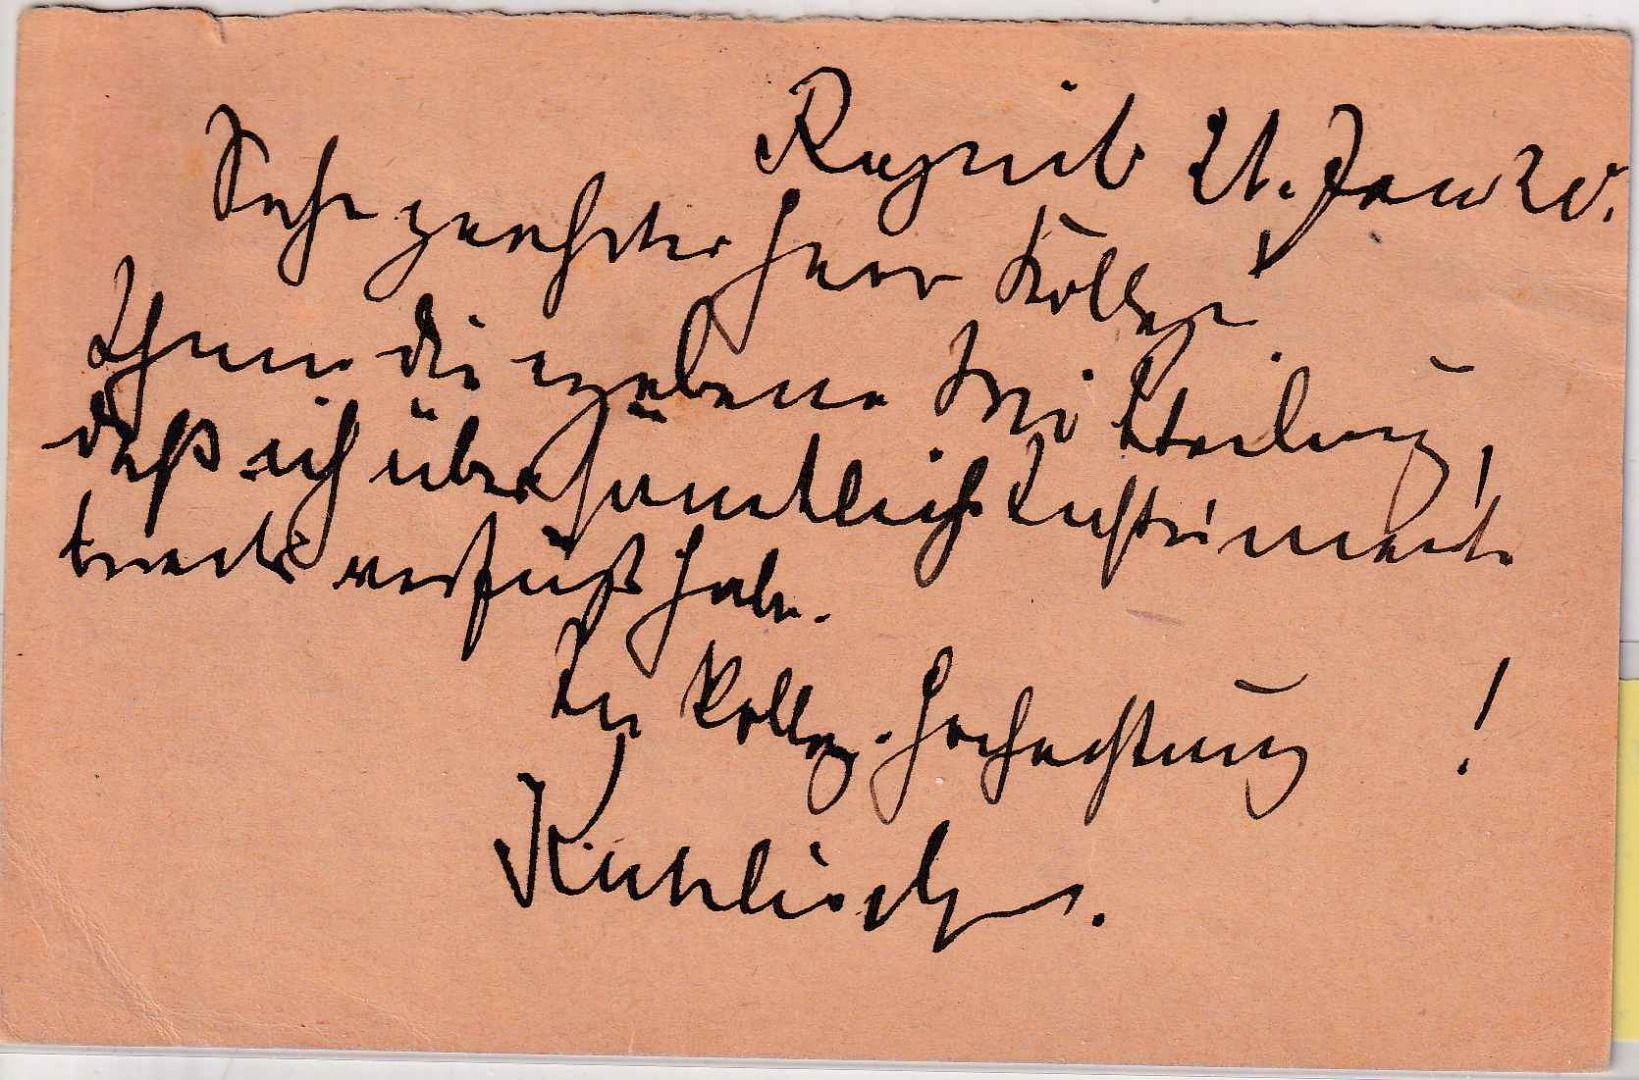 Ragnit 21. Jan 20.
Sehr geehrter Herr Kollege!
Ihnen die ergebene Mitteilung,
daß ich über sämtliche Instrumente
bereits verfügt habe.
In kolleg. Hochachtung!